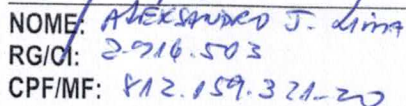 NOME: ALEKSANDRO J. Lima
RG/CI: 2.916.503
CPF/MF: 812.159.321-20